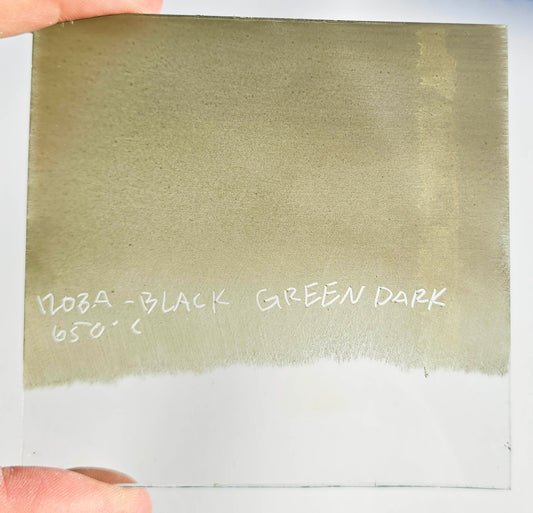 1203A - BLACK GREEN DARK
650° C